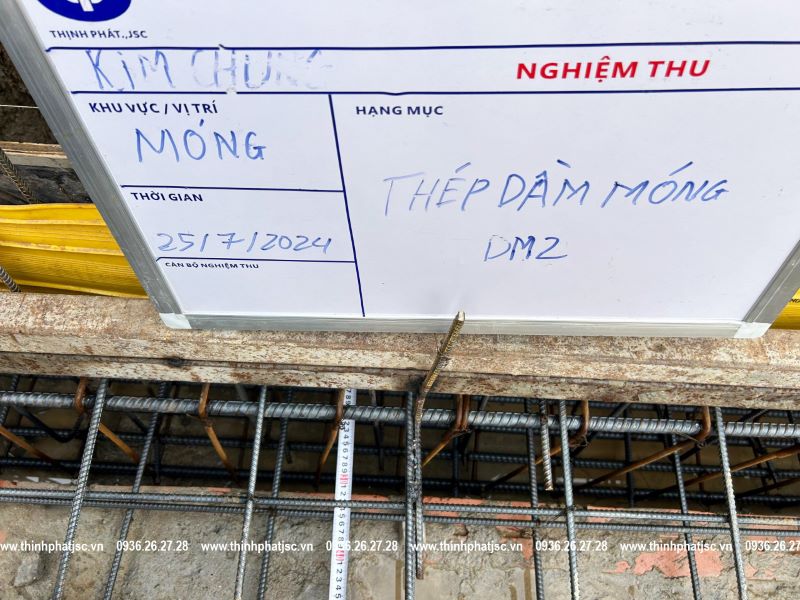 THỊNH PHÁT.,JSC
KIM CHUNG
NGHIỆM THU
KHU VỰC / VỊ TRÍ
MÓNG
HẠNG MỤC
THÉP DẦM MÓNG
DM2
THỜI GIAN
25/7/2024
CÁN BỘ NGHIỆM THU
www.thinhphatjsc.vn 0936.26.27.28 www.thinhphatjsc.vn 0936.26.27.28 www.thinhphatjsc.vn 0936.26.27.28 www.thinhphatjsc.vn 0936.26.27.28